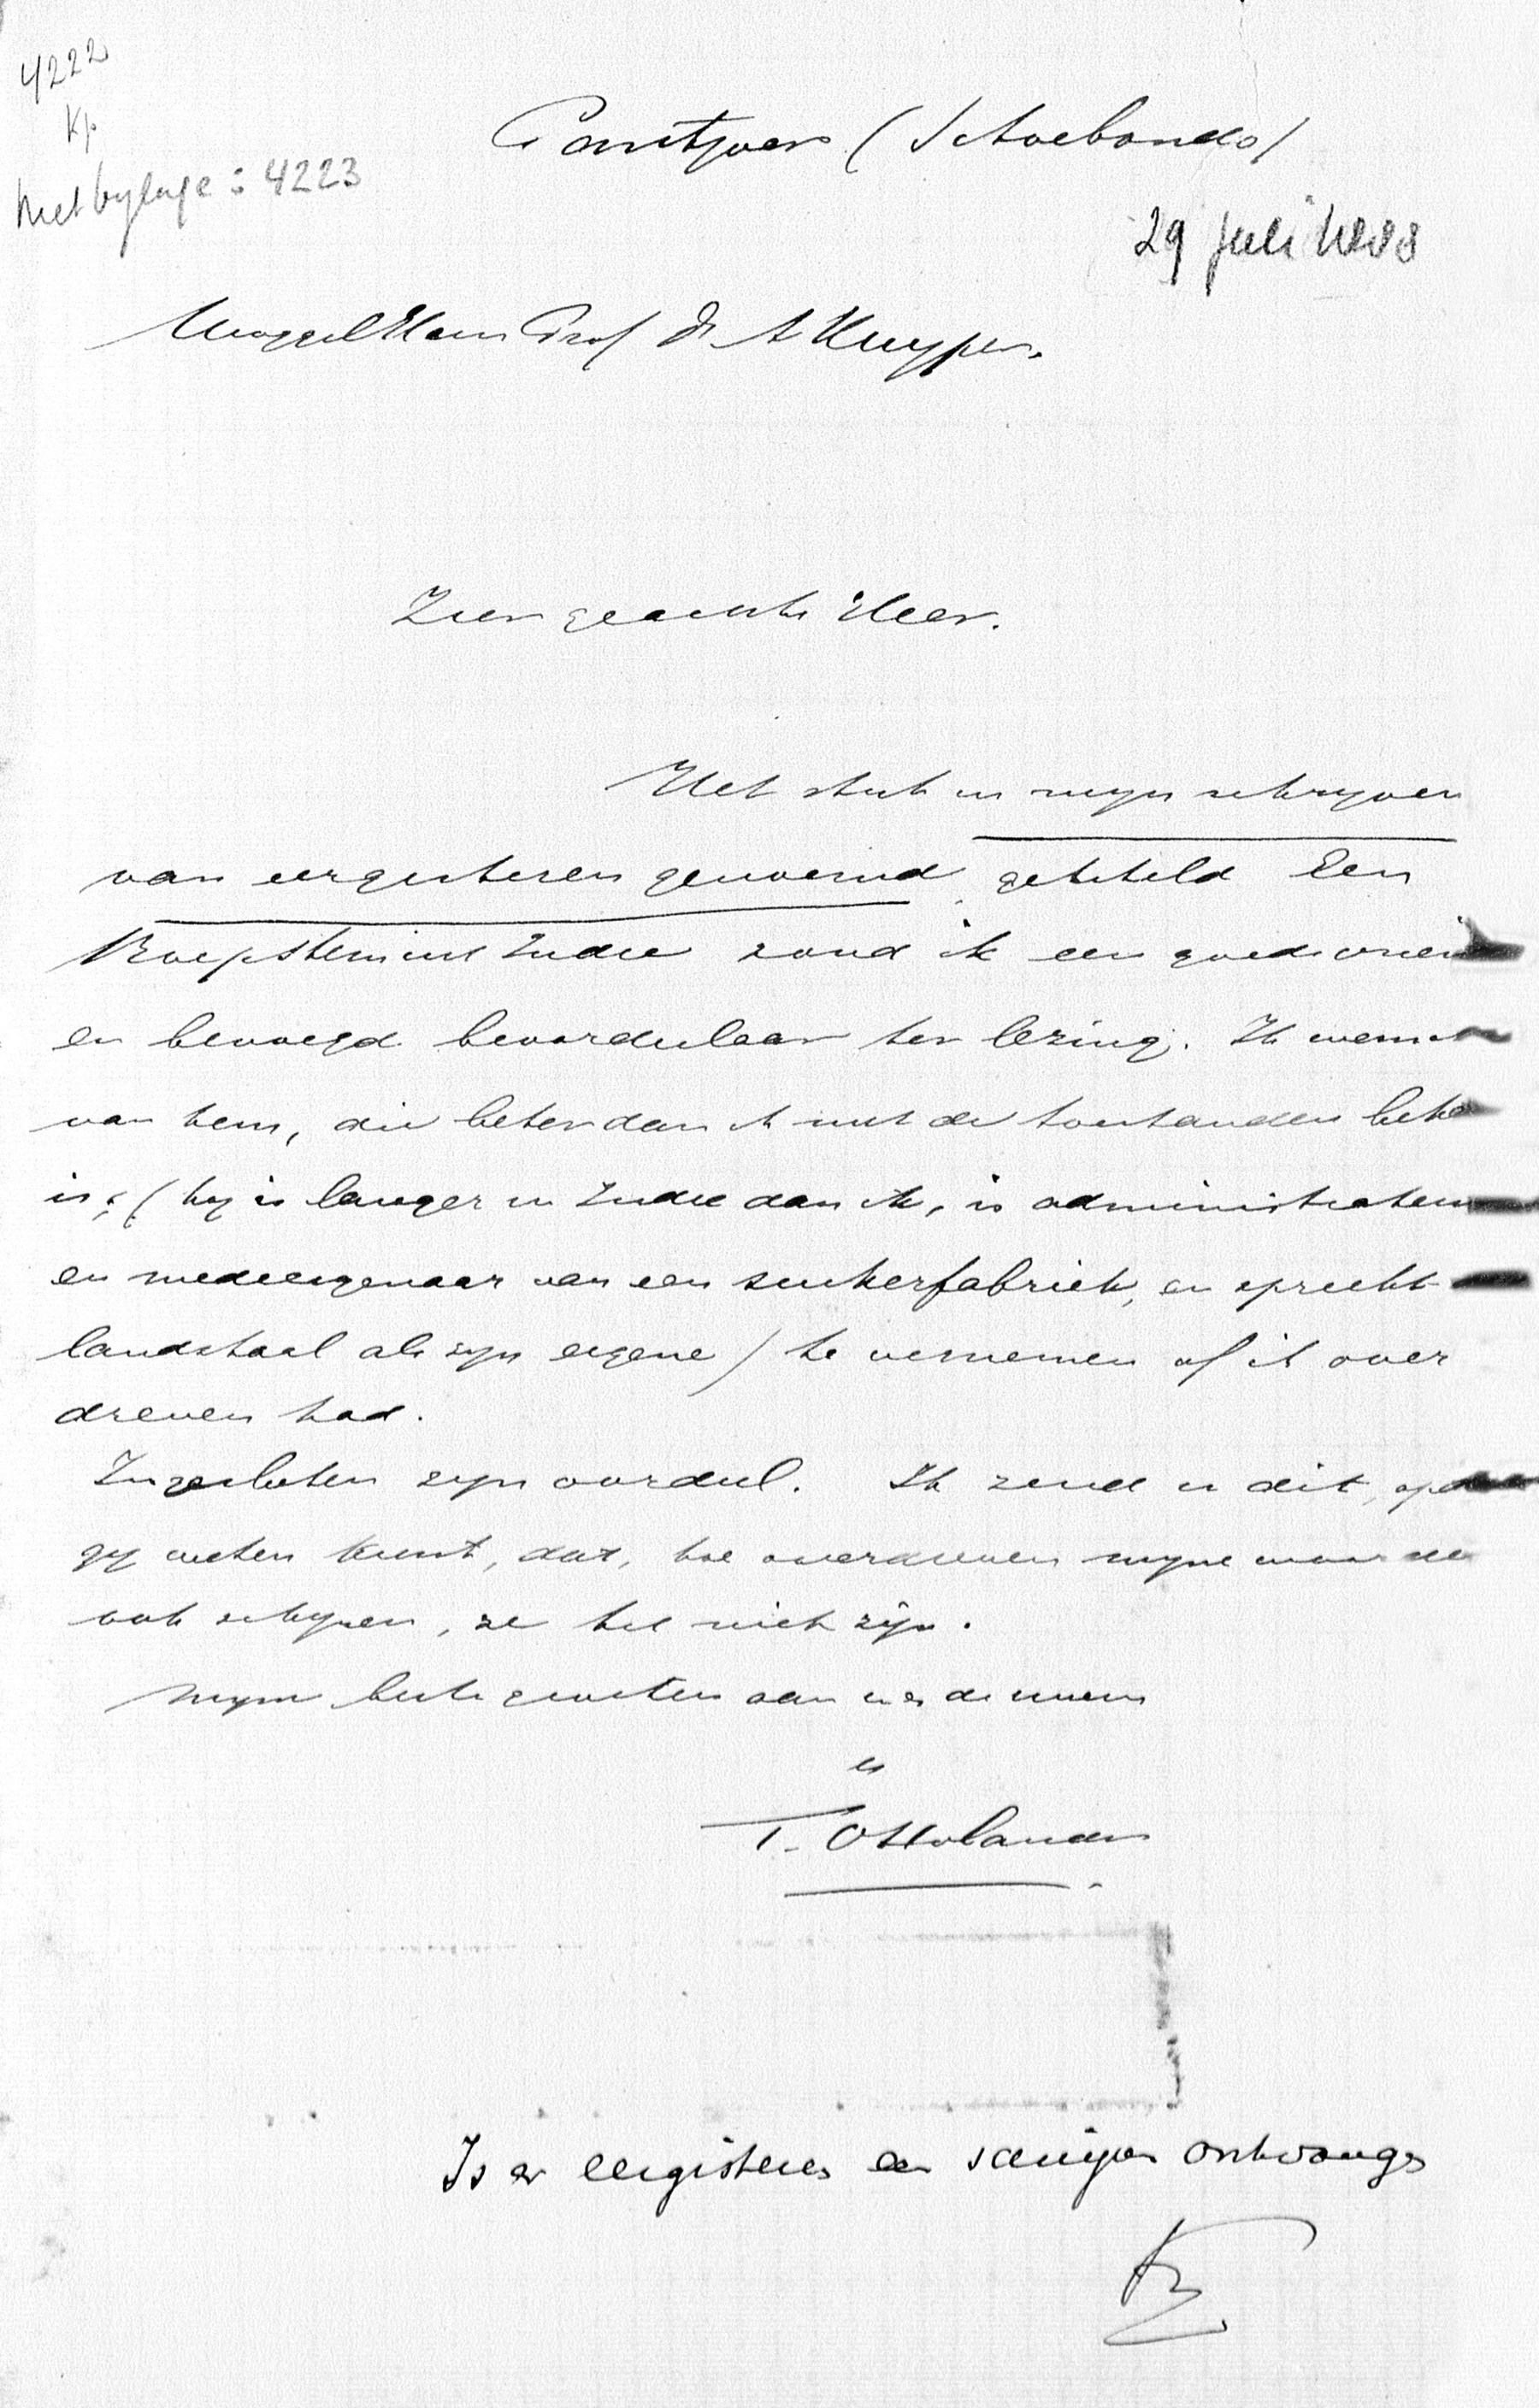 4222
Kp
Met bylage: 4223
Pantjoer (Sitoebondo)
29 Juli 1888
WelEd. Heer Prof Dr A Kuyper.
Zeer geachte Heer.
Het stuk in mijn schrijven
van eergisteren genoemd, getiteld Een
Roepstem uit Indie zond ik een goede vriend
en bevoegd beoordeelaar ter lezing. Ik wensch
van hem, die beter dan ik met de toestanden beke
is, (hij is langer in Indie dan ik, is administrateur
en medeeigenaar van een suikerfabriek, en spreekt
landstaal als zijn eigene) te vernemen of ik over
dreven had.
Ingesloten zijn oordeel. Ik zend u dit, op
gij weten kunt, dat, hoe overdreven mijne woorden
ook schijnen, ze het niet zijn.
Mijn beste groeten aan u en de uwen
T. Ottolander
Is er eergisteren een schrijven ontvangen